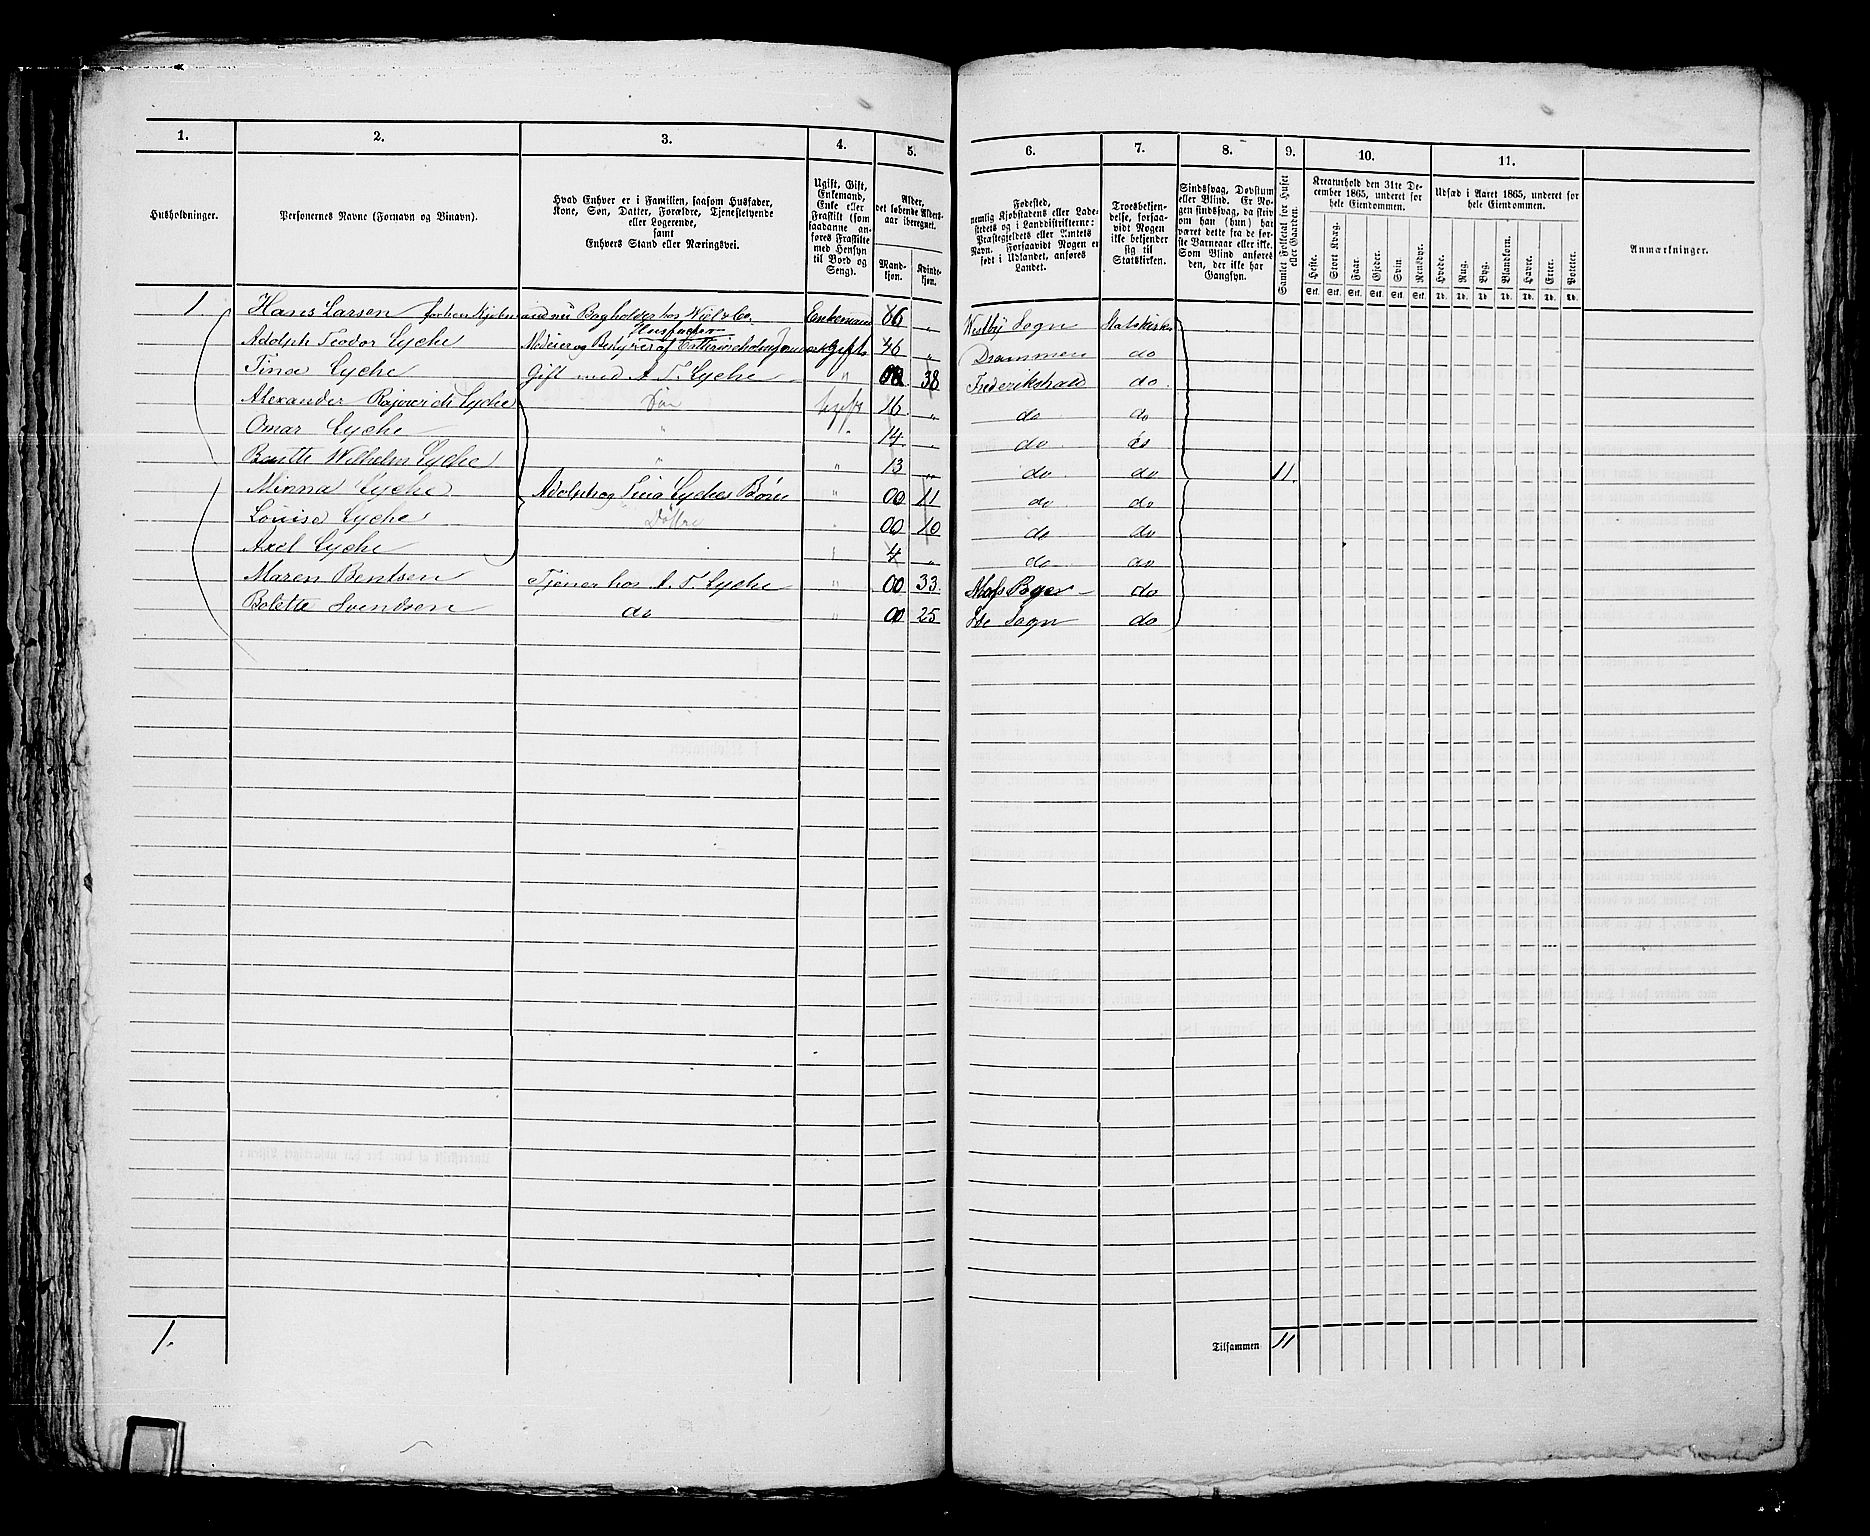 1. 2. 3. 4. 5. 6. 7. 8. 9. 10. 11.
Husholdninger.
Personernes Navne (Fornavn og Binavn).
Hvad Enhver er i Familien, saasom Husfader,
Kone, Søn, Datter, Forældre, Tjenestetyende
eller Logerende,
samt
Enhvers Stand eller Næringsvei.
Ugift, Gift,
Enkemand,
Enke eller
Fraskilt (som
saadanne an-
føres Fraskilte
med Hensyn
til Bord og
Seng).
Alder,
det løbende Alders-
aar iberegnet.
Mand-
kjøn.
Kvinde-
kjøn.
Fødested,
nemlig Kjøbstadens eller Lade-
stedets og i Landdistrikterne:
Præstegjeldets eller Amtets
Navn. Forsaavidt Nogen er
født i Udlandet, anføres
Landet.
Troesbekjen-
delse, forsaa-
vidt Nogen
ikke bekjender
sig til
Statskirken.
Sindssvag, Døvstum
eller Blind. Er No-
gen sindssvag, da skriv
om han (hun) har
været dette fra de før-
ste Barneaar eller ikke.
Som Blind anføres
den, der ikke har
Gangsyn.
Samlet Folketal for Huset
eller Gaarden.
Kreaturhold den 31te De-
cember 1865, underet for
hele Eiendommen.
Heste. Stort Kvæg. Faar. Gjeder. Svin Rensdyr.
Stk. Stk. Stk. Stk. Stk. Stk.
Udsæd i Aaret 1865, underet for
hele Eiendommen.
Hvede. Rug. Byg. Blandkorn. Havre. Erter. Poteter.
Td. Td. Td. Td. Td. Td. Td.
Anmærkninger.
1 Hans Larsen forhen Kjøbmand nu Bogholder hos Wiel & Co. Enkemand 66 " Westby Sogn Statskirke
Husfader
Adolph Teodor Lyche Medeier og Bestyrer af Gift 46 " Drammen do
Tina Lyche Gift med A T. Lyche " 38 Frederikshald do
Alexander Lyche Søn Ugift 16 " do do
Omar Lyche " " 14 " do do
Wilhelm Lyche " " 13 " do do 11.
Minna Lyche Adolph og Tina Lyches Børn " 00 11 do do
Louise Lyche Døttre " 00 10 do do
Axel Lyche " 4 " do do
Maren Bentsen Tjener hos A. T. Lyche " 00 33 do
Bolette Svendsen do " 00 25 Ide Sogn do
1. Tilsammen 11